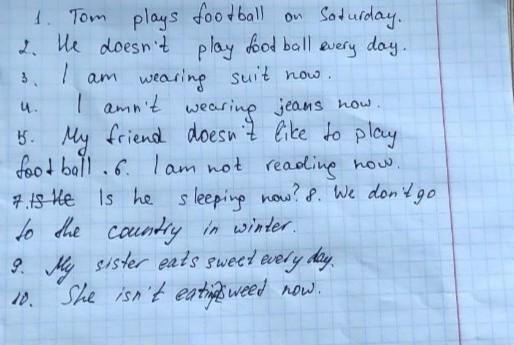 1. Tom plays football on Saturday.
2. He doesn't play football every day.
3. I am wearing suit now.
4. I amn't wearing jeans now.
5. My friend doesn't like to play
football. 6. I am not reading now.
7. Is He Is he sleeping now? 8. We don't go
to the country in winter.
9. My sister eats sweet every day.
10. She isn't eating sweed now.